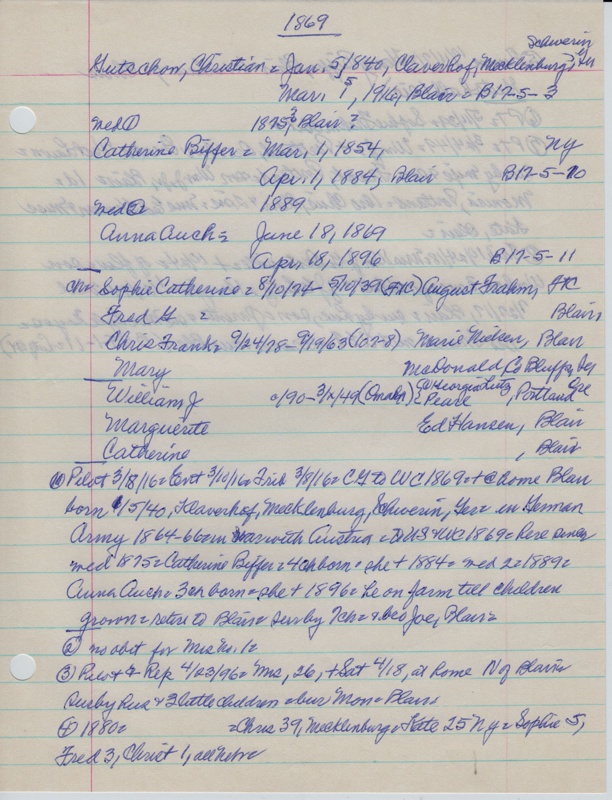 1869
Schwerin
Gutschow, Christian = Jan. 5, 1840, Claverhof, Mecklenburg, Ger
Mar. 5, 1916, Blair = B17-5-3
med ① 1875, Blair?
Catherine Biffer = Mar. 1, 1854, NY
Apr. 1, 1884, Blair B17-5-10
med ② 1889
Anna Auch = June 18, 1869
Apr. 18, 1896 B17-5-11
ch= Sophie Catherine = 8/10/74 - 5/10/39 (FtC) August Frahm, FtC
Fred G = Blair
Chris Frank = 9/24/78 - 9/19/63 (107-8) Marie Nielsen, Blair
Mary McDonald, Co Bluffs, Ia
William J 0/90 - 3/ /49 (Omaha) Georgia Lutz, Pearl , Portland Ore
Marguerite Ed Hansen, Blair
Catherine , Blair
① Pilot 3/8/16 = Ent 3/10/16 = Trib 3/8/16 = CG to WC 1869 = + @ home Blair
born 1/5/40, Klaverhof, Mecklenburg, Schwerin, Ger = in German
Army 1864-66 = in war with Austria = to US + WC 1869 = here since
med 1875 = Catherine Biffer = 4 ch born = she + 1884 = med 2 = 1889 =
Anna Auch = 3 ch born = she + 1896 = he on farm till children
grown = retire to Blair = surv by 7 ch = & bro Joe, Blair =
② no obit for Mrs No. 1 =
③ Pilot & Rep 4/23/96 = Mrs, 26, + Sat 4/18, at home N of Blair =
surv by hus + 3 little children = bur Mon = Blair
④ 1880 = = Chris 39, Mecklenburg = Kate 25 NY = Sophie 5,
Fred 3, Christ 1, all Nebr =